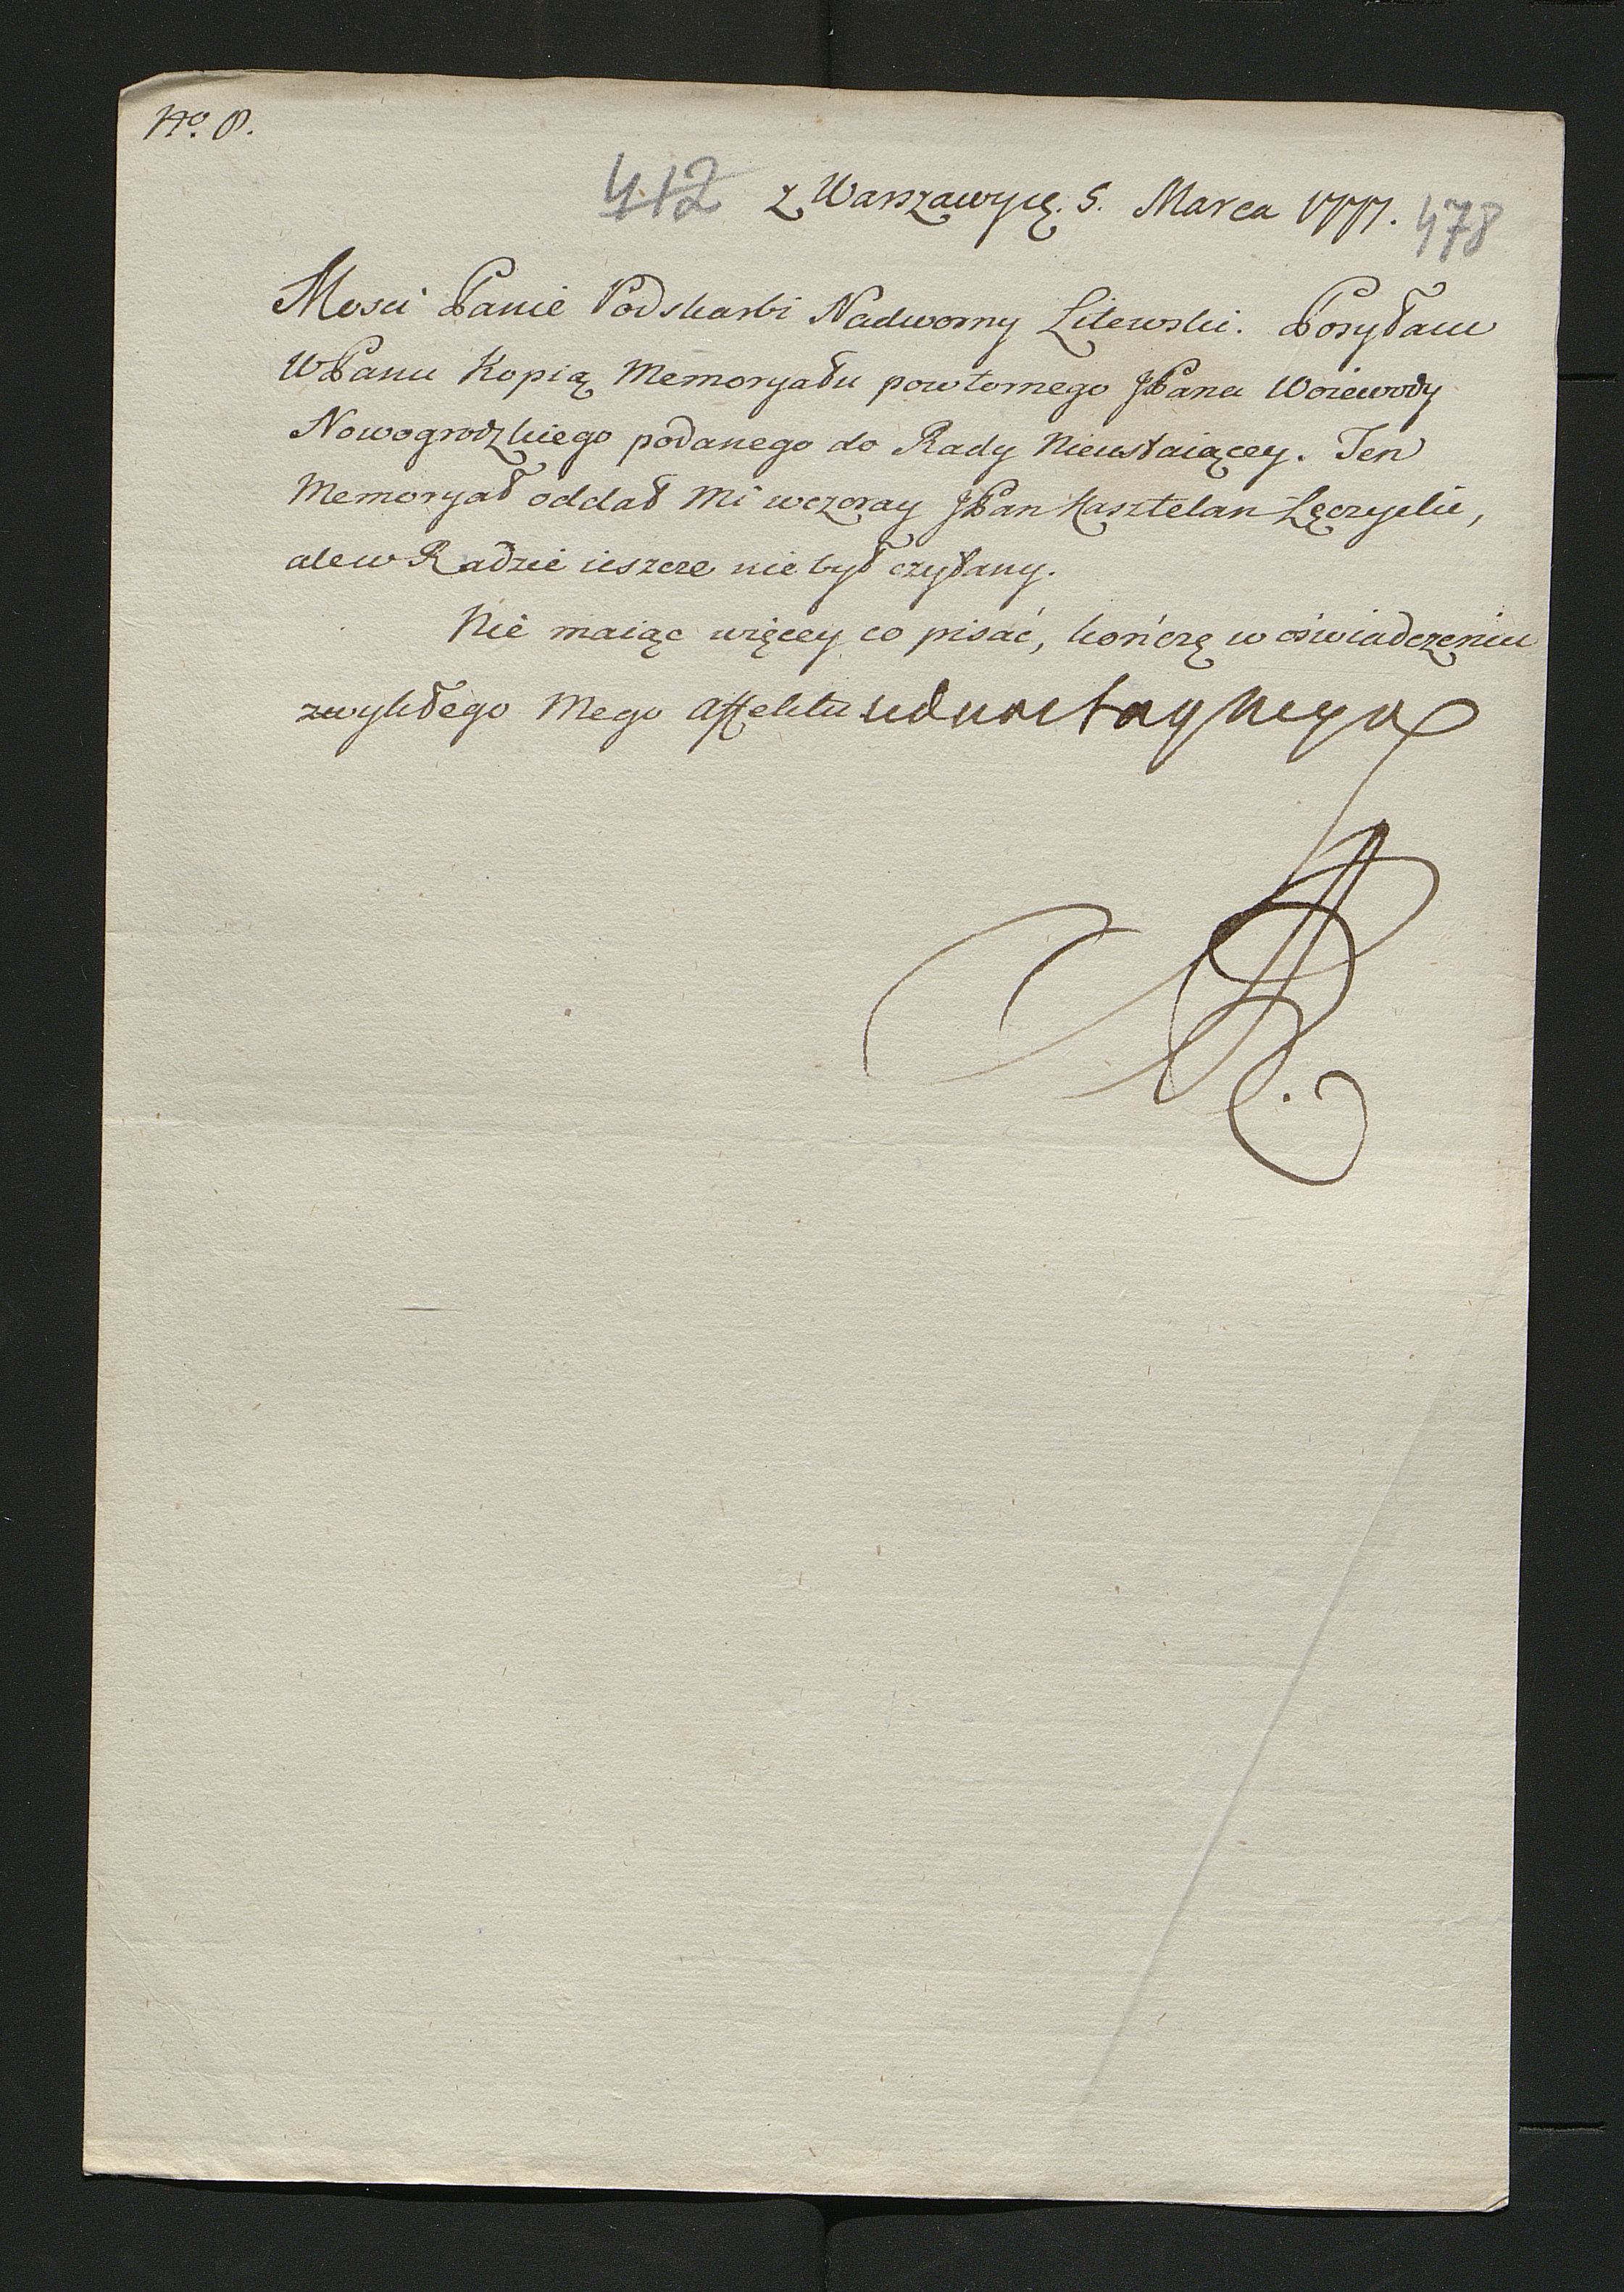 No. 8.
412 z Warszawy d. 5. Marca 1777. 478
Mosci Panie Podskarbi Nadworny Litewski. Posyłam
WPanu Kopią Memoryału powtornego JPana Woiewody
Nowogrodzkiego podanego do Rady Nieustaiącey. Ten
Memoryał oddał Mi wczoray JPan Kasztelan Łęczycki,
ale w Radzie ieszcze nie był czytany.
Nie maiąc więcey co pisać, kończę w oświadczeniu
zwykłego Mego Affektu